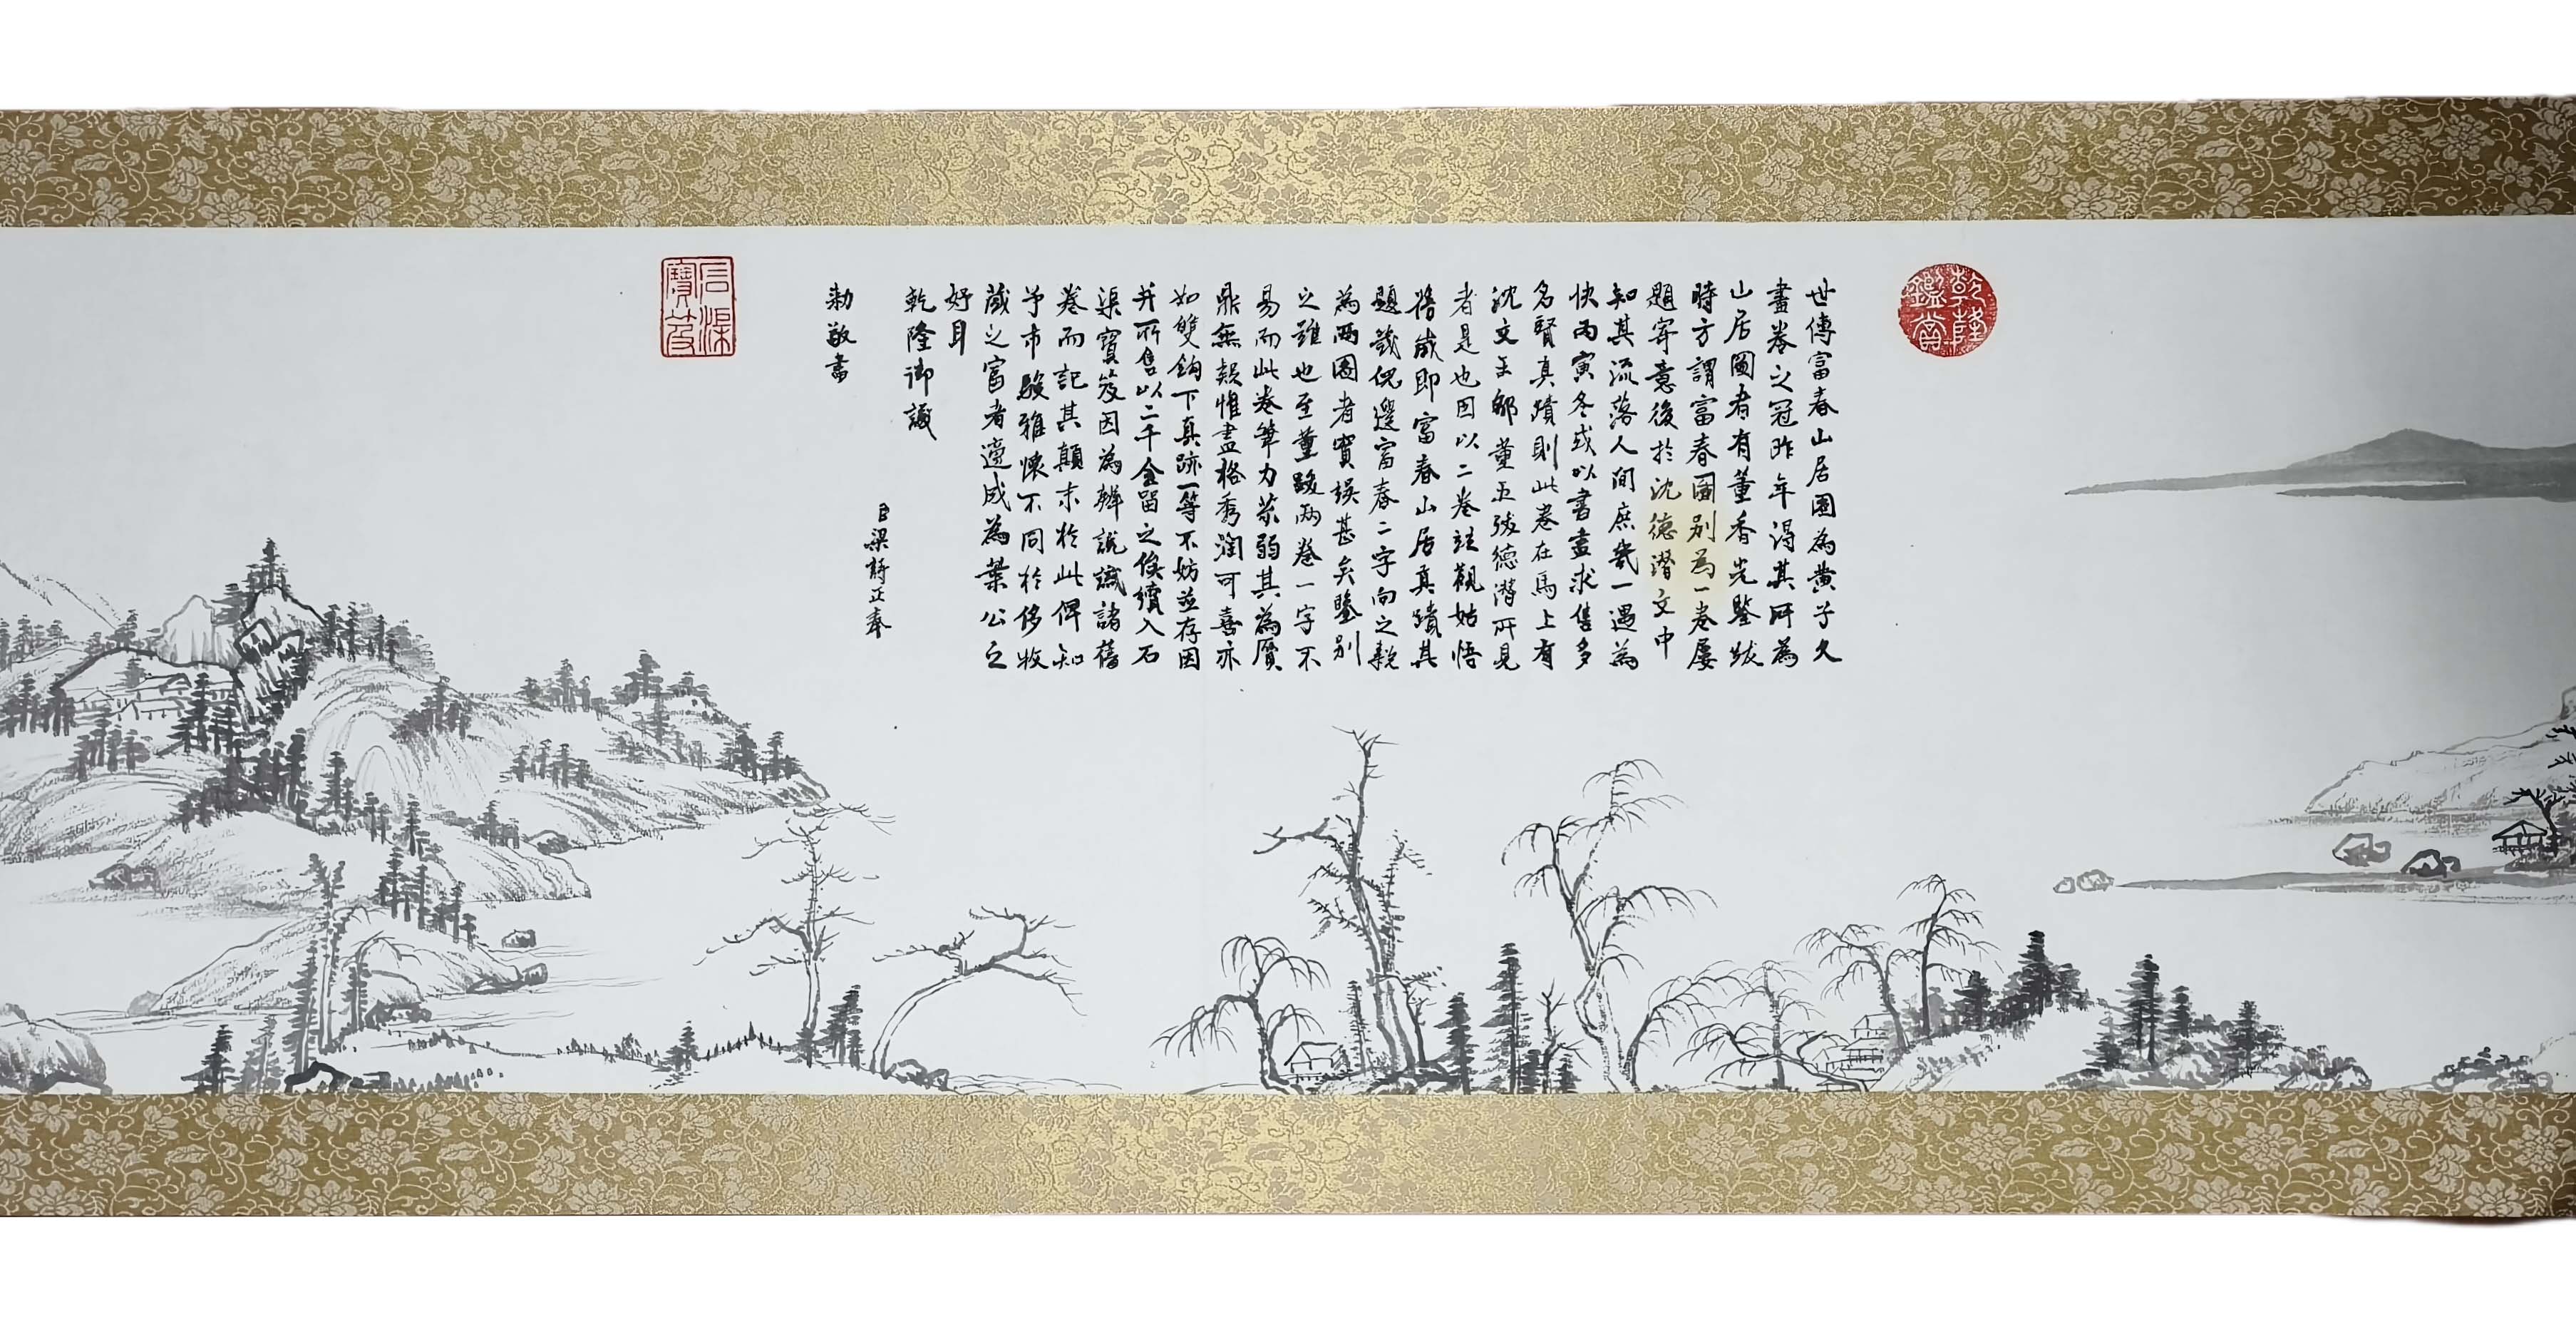 乾隆鑑賞
世傳富春山居圖為黄子久
畫卷之冠昨年得其所為
山居圖者有董香光鑒跋
時方謂富春圖别為一卷屢
題寄意後於沈德潛文中
知其流落人間庶幾一遇為
快丙寅冬或以書畫求售多
名賢真蹟則此卷在焉上有
沈文王鄒董五跋德潛所見
者是也因以二卷並觀始悟
舊藏即富春山居真蹟其
題籤偶遺富春二字向之疑
為兩圖者實誤甚矣鑒别
之難也至董跋兩卷一字不
易而此卷筆力苶弱其為贗
鼎無疑惟畫格秀潤可喜亦
如雙鈎下真跡一等不妨並存因
并所售以二千金留之俟續入石
渠寶笈因為辨說識諸舊
卷而記其顛末於此俾知
予市駿雅懷不同於侈收
藏之富者適成為葉公之
好耳
乾隆御識
臣梁詩正奉
勅敬書
石渠寶笈